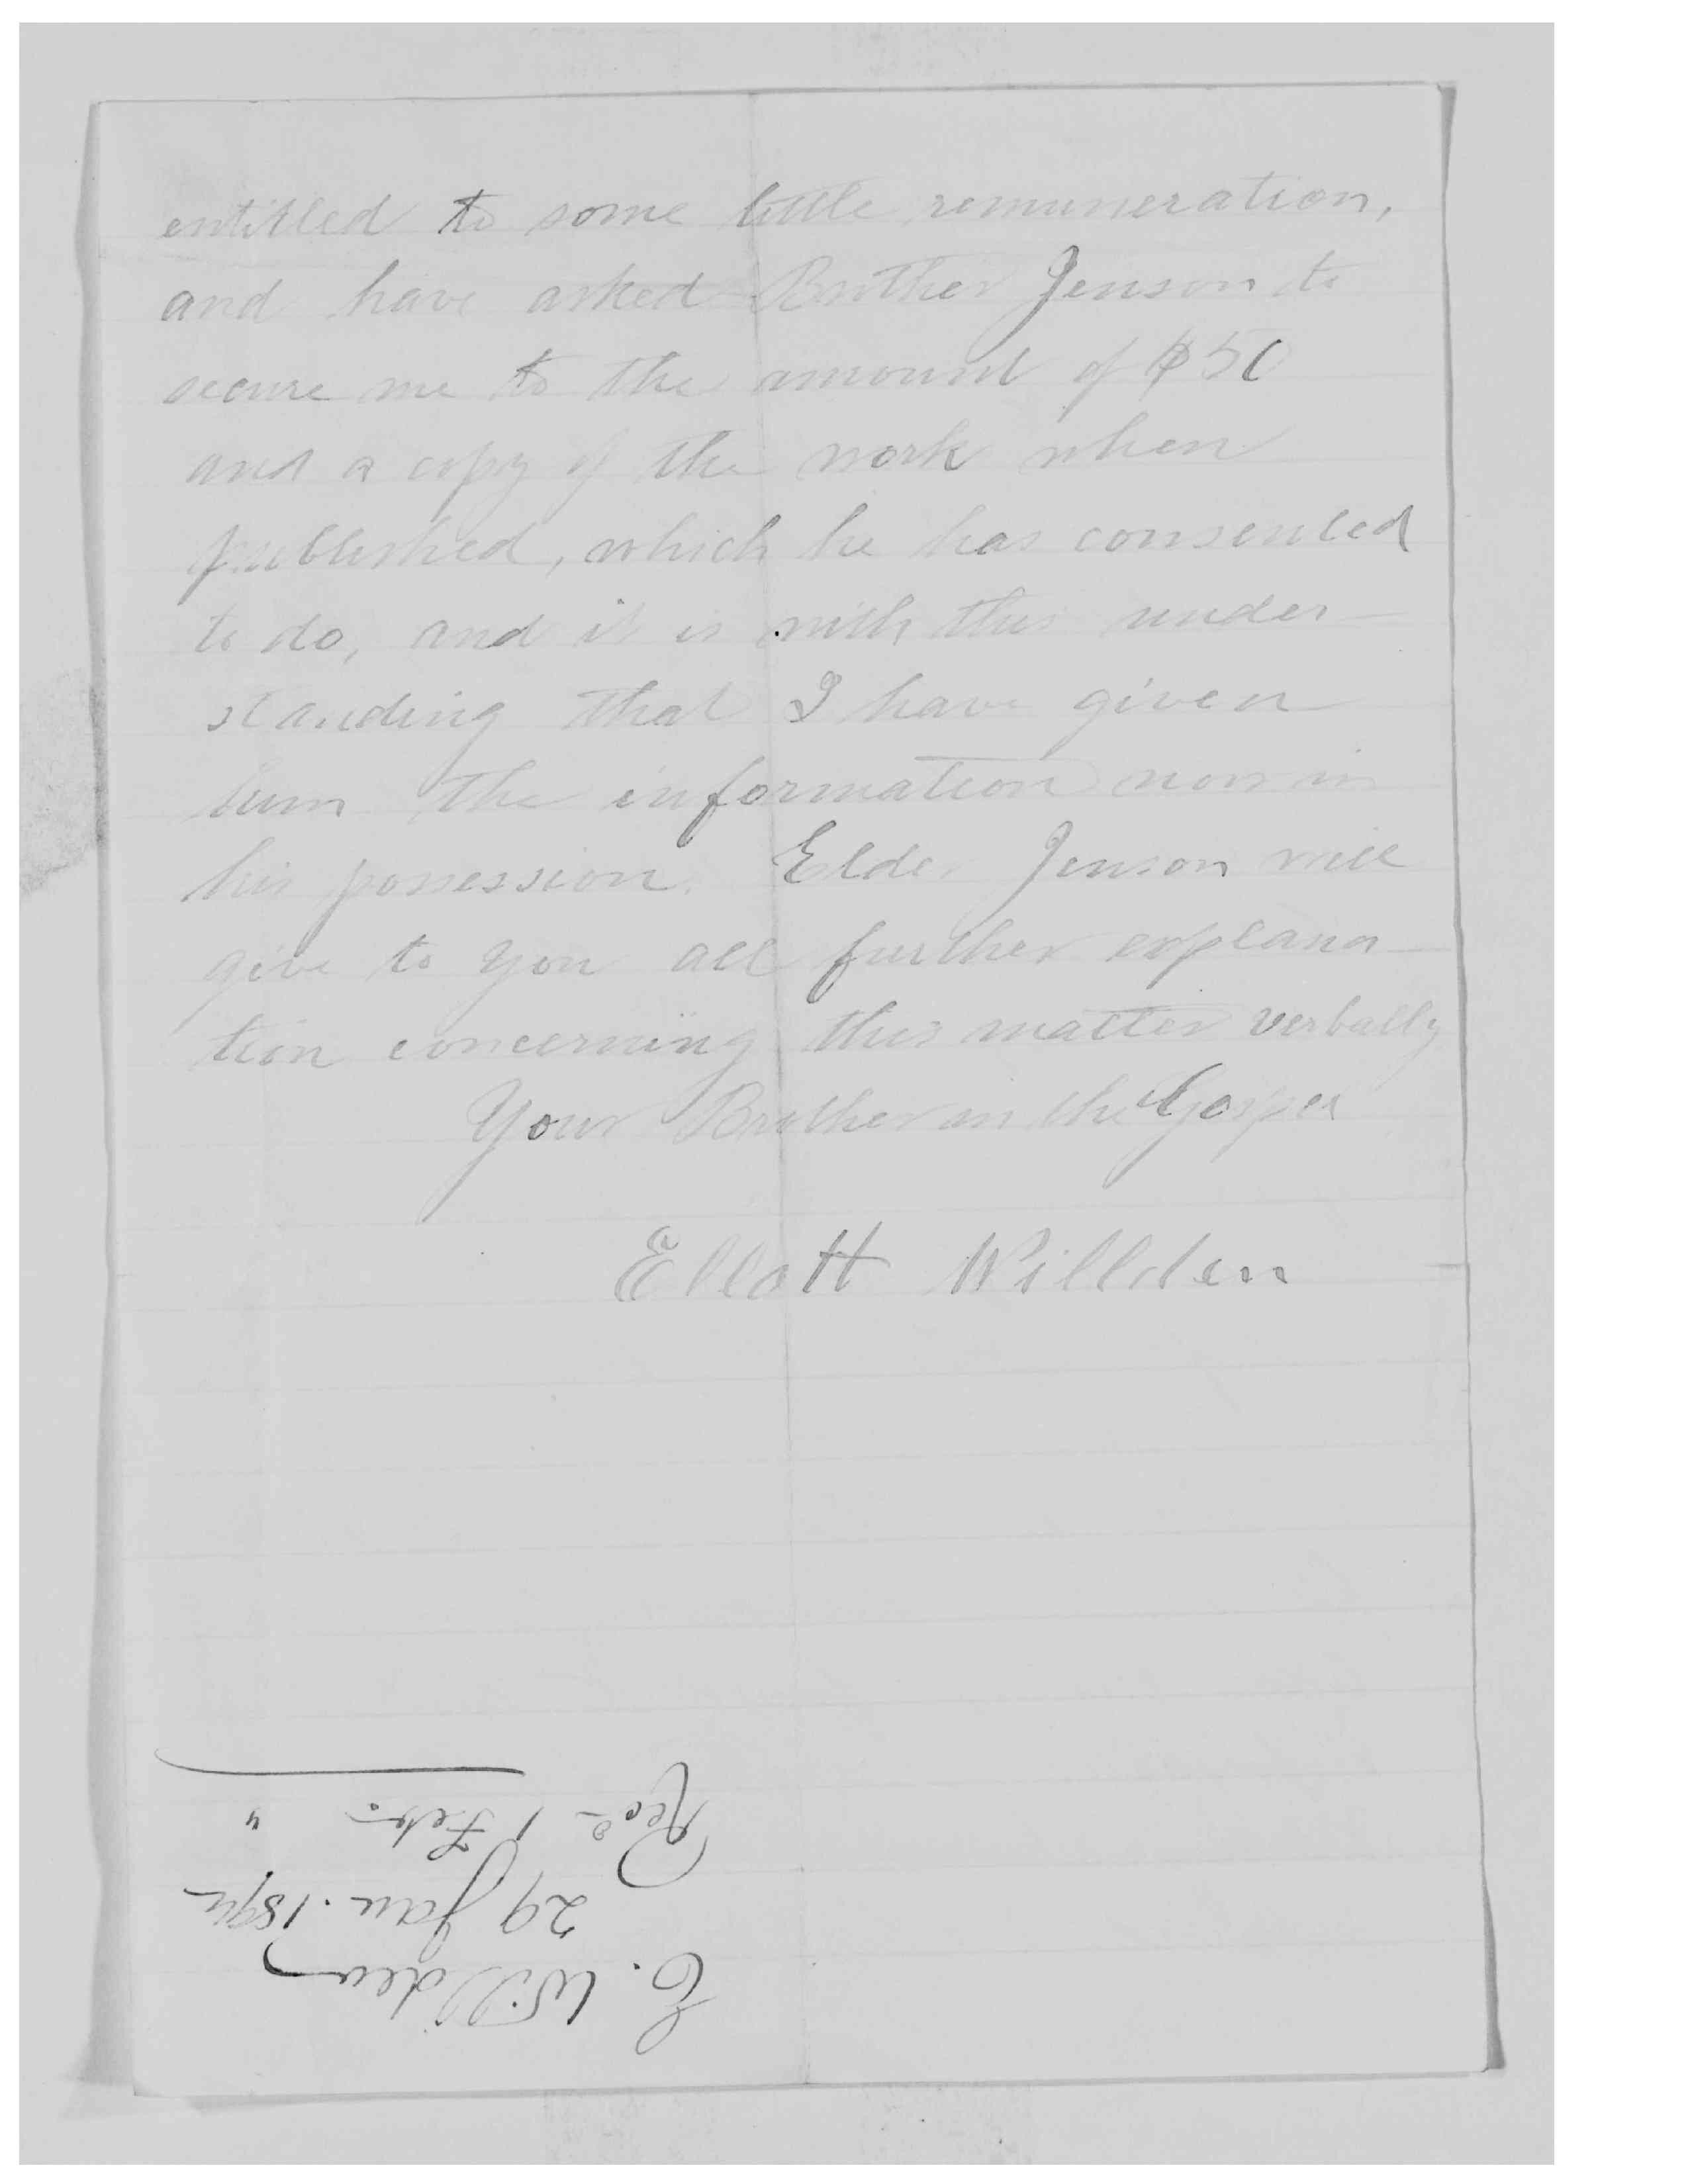 entitled to some little remuneration,
and have asked Brother Jenson to
secure me to the amount of $50
and a copy of the work when
published, which he has consented
to do, and it is with this under-
standing that I have given
him the information now in
his possession. Elder Jenson will
give to you all further explana-
tion concerning this matter verbally
Your Brother in the Gospel
Ellott Willden
E. Willden
29 Jan. 1892
Recd 1 Feb. "